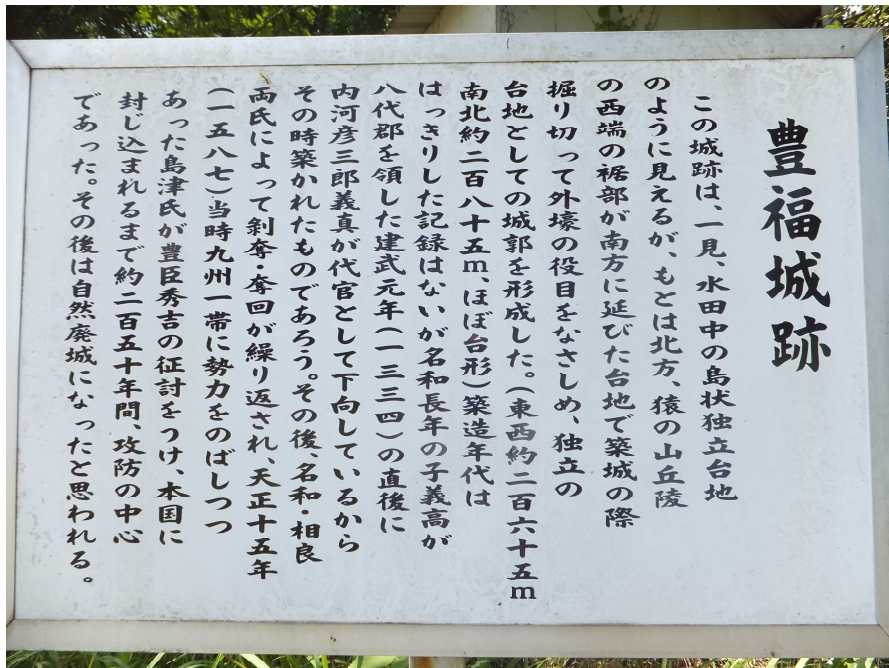 豊福城跡
この城跡は、一見、水田中の島状独立台地
のように見えるが、もとは北方、猿の山丘陵
の西端の裾部が南方に延びた台地で築城の際
掘り切って外壕の役目をなさしめ、独立の
台地としての城郭を形成した。(東西約二百六十五m
南北約二百八十五m、ほぼ台形)築造年代は
はっきりした記録はないが名和長年の子義高が
八代郡を領した建武元年(一三三四)の直後に
内河彦三郎義真が代官として下向しているから
その時築かれたものであろう。その後、名和・相良
両氏によって剝奪・奪回が繰り返され、天正十五年
(一五八七)当時九州一帯に勢力をのばしつつ
あった島津氏が豊臣秀吉の征討をうけ、本国に
封じ込まれるまで約二百五十年間、攻防の中心
であった。その後は自然廃城になったと思われる。